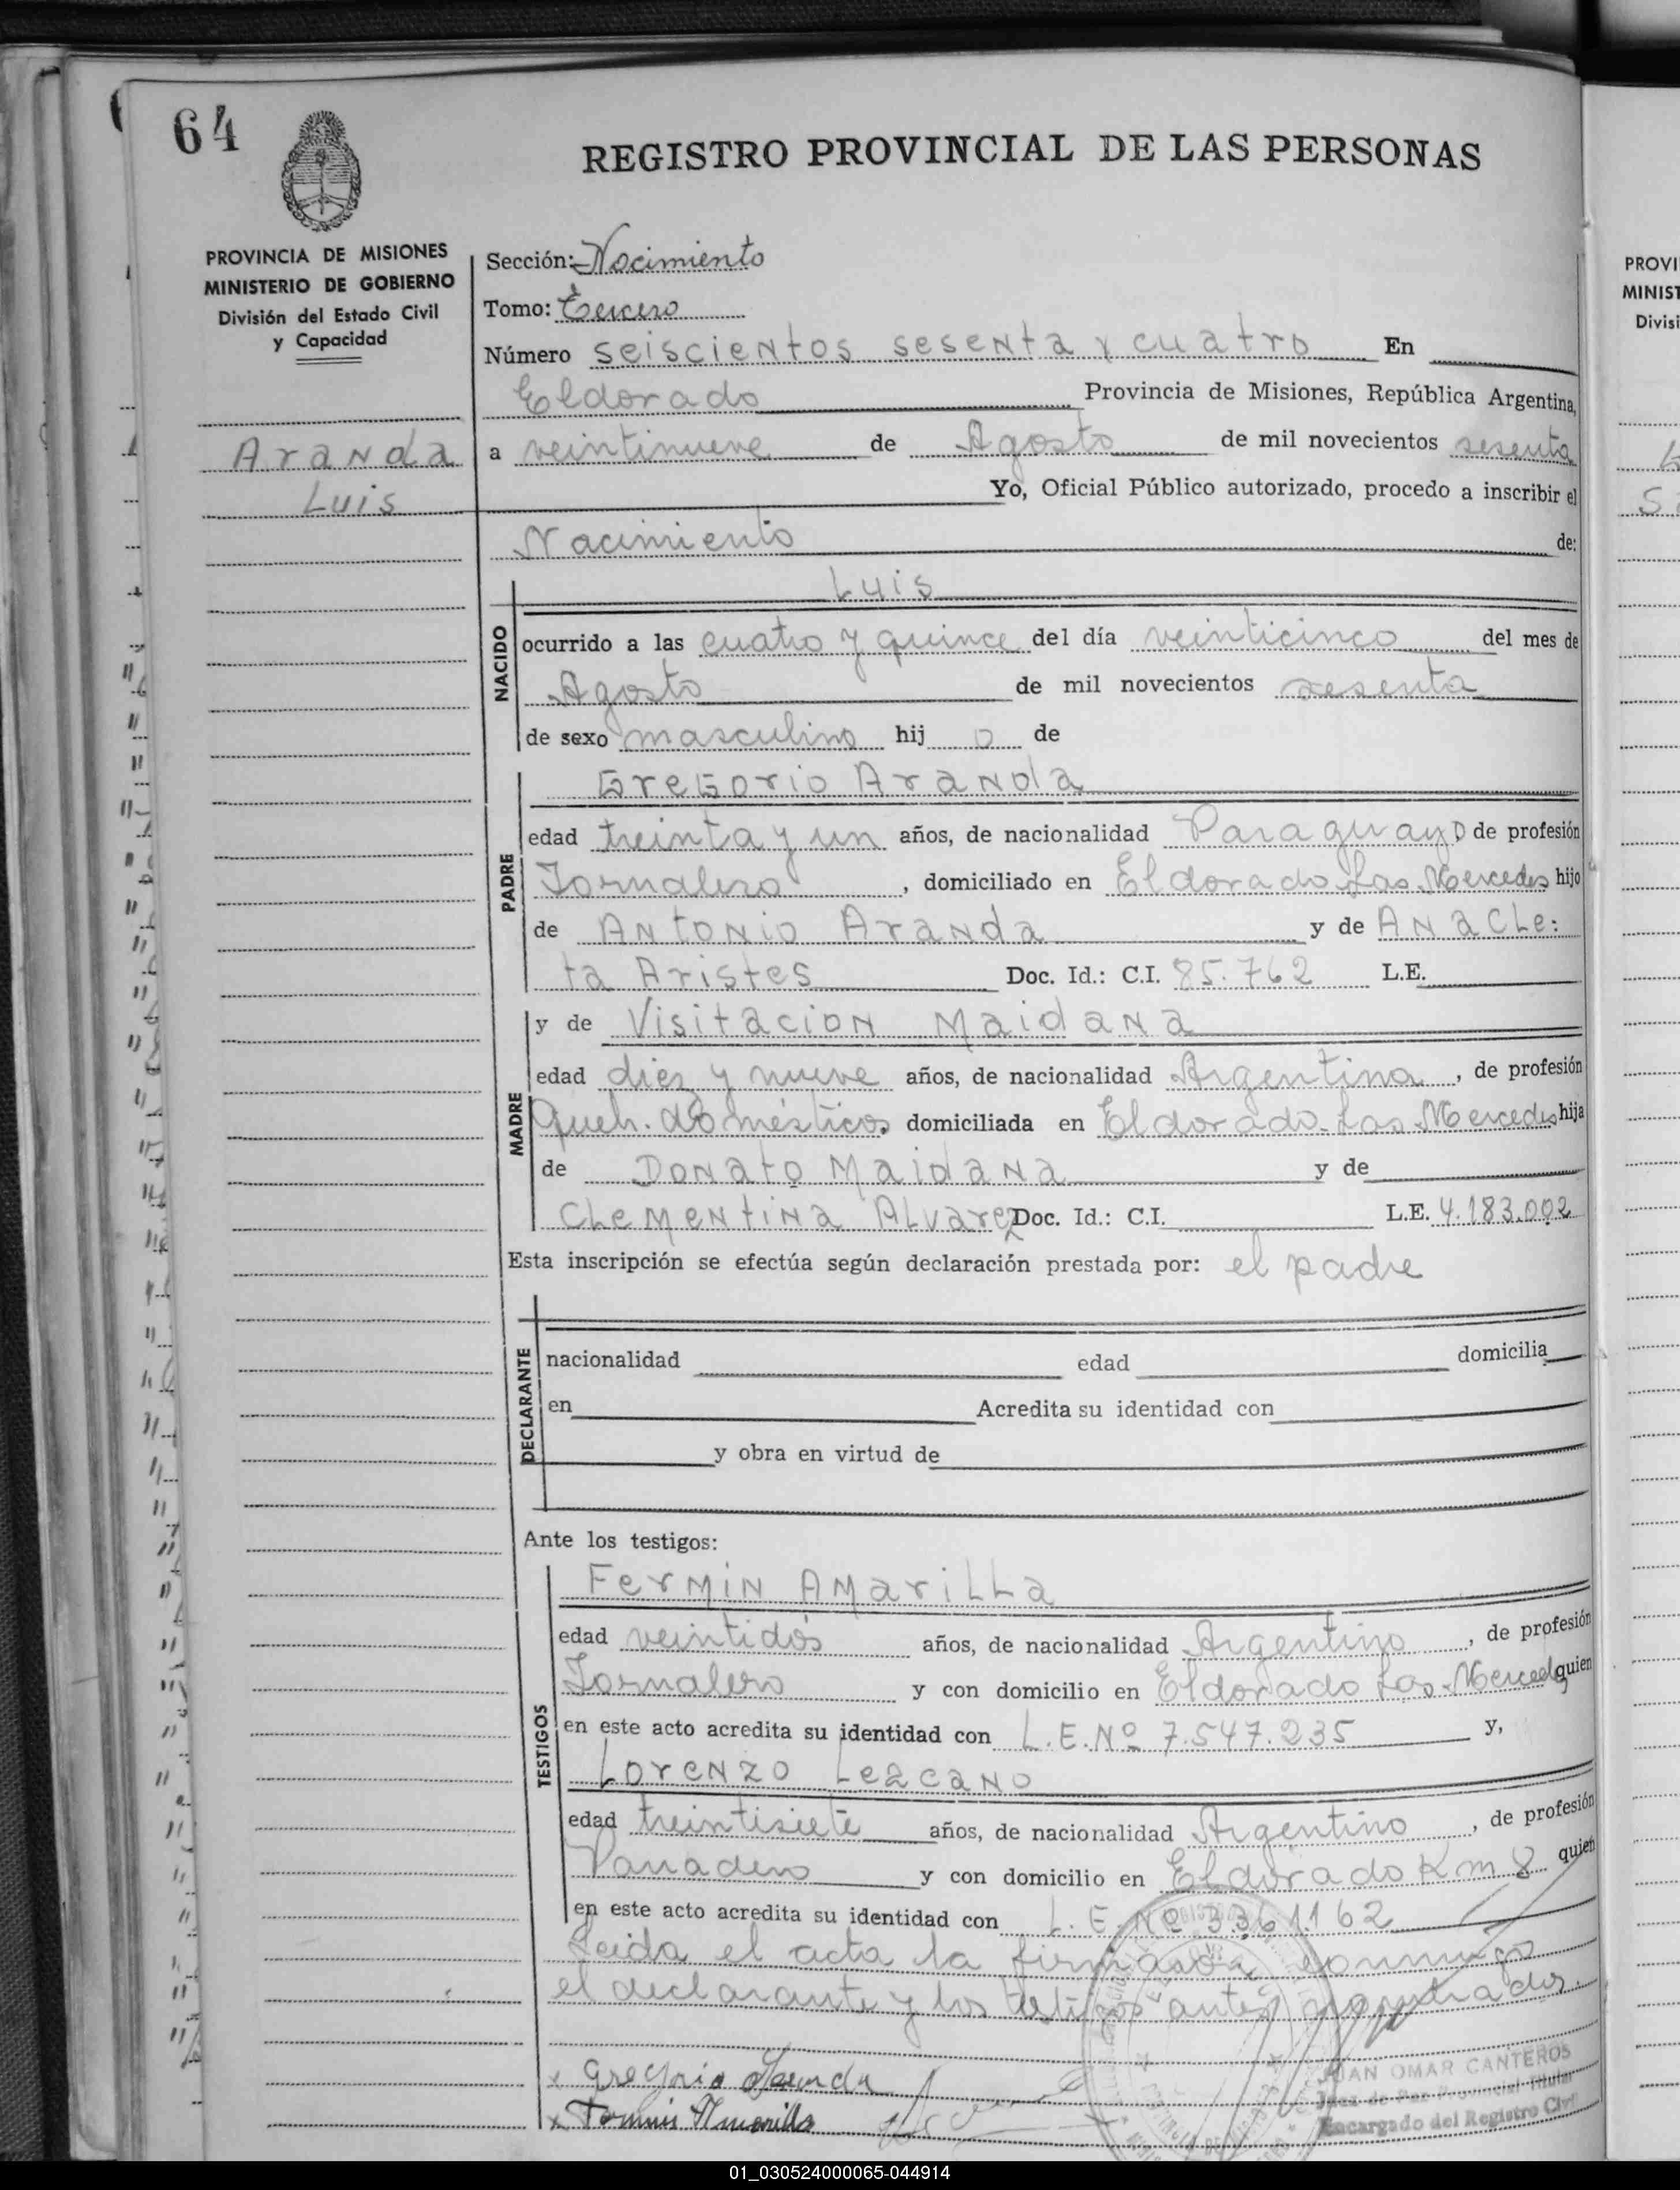 64
REGISTRO PROVINCIAL DE LAS PERSONAS
PROVINCIA DE MISIONES
MINISTERIO DE GOBIERNO
División del Estado Civil
y Capacidad
Aranda
Luis
Sección: Nacimiento
Tomo: Tercero
Número seiscientos sesenta y cuatro En
Eldorado Provincia de Misiones, República Argentina,
a veintinueve de Agosto de mil novecientos sesenta
Yo, Oficial Público autorizado, procedo a inscribir el
Nacimiento de:
NACIDO
Luis
ocurrido a las cuatro y quince del día veinticinco del mes de
Agosto de mil novecientos sesenta
de sexo masculino hij o de
PADRE
Gregorio Aranda
edad treinta y un años, de nacionalidad Paraguayo de profesión
Jornalero, domiciliado en Eldorado Las Mercedes hijo
de Antonio Aranda y de Anacle:
ta Aristes Doc. Id.: C.I. 85.762 L.E.
MADRE
y de Visitacion Maidana
edad diez y nueve años, de nacionalidad Argentina, de profesión
Queh. domésticos domiciliada en Eldorado Las Mercedes hija
de Donato Maidana y de
Clementina Alvarez Doc. Id.: C.I. L.E. 4.183.002
Esta inscripción se efectúa según declaración prestada por: el padre
DECLARANTE
nacionalidad edad domicilia
en Acredita su identidad con
y obra en virtud de
Ante los testigos:
TESTIGOS
Fermin Amarilla
edad veintidós años, de nacionalidad Argentino, de profesión
Jornalero y con domicilio en Eldorado Las Merced quien
en este acto acredita su identidad con L.E.Nº 7.547.235 y,
Lorenzo Lezcano
edad treintisiete años, de nacionalidad Argentino, de profesión
Panadero y con domicilio en Eldorado Km 8 quien
en este acto acredita su identidad con L.E.Nº 3361162
Leida el acta la firman conmigo
el declarante y los testigos antes
Gregorio Aranda
JUAN OMAR CANTEROS
Juez de Paz Provincial Titular
Encargado del Registro Civil
PROVI
MINIST
Divisi
01_030524000065-044914